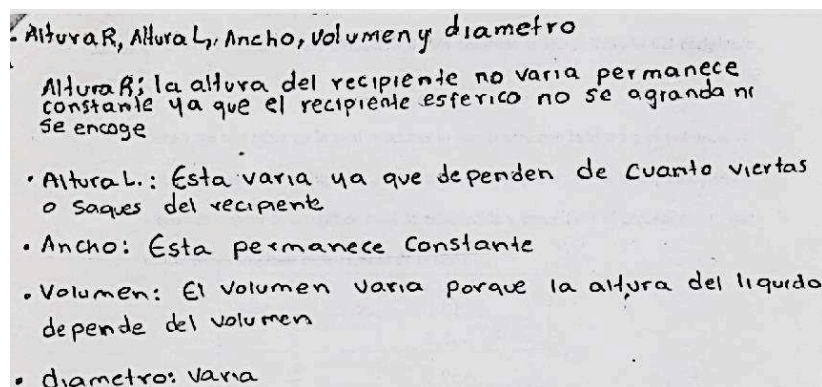 · Altura R, Altura L, Ancho, Volumen y diametro
Altura R: la altura del recipiente no varia permanece
constante ya que el recipiente esferico no se agranda ni
se encoge
· Altura L.: Esta varia ya que dependen de cuanto viertas
o saques del recipiente
· Ancho: Esta permanece Constante
· Volumen: El volumen varia porque la altura del liquido
depende del volumen
· diametro: varia